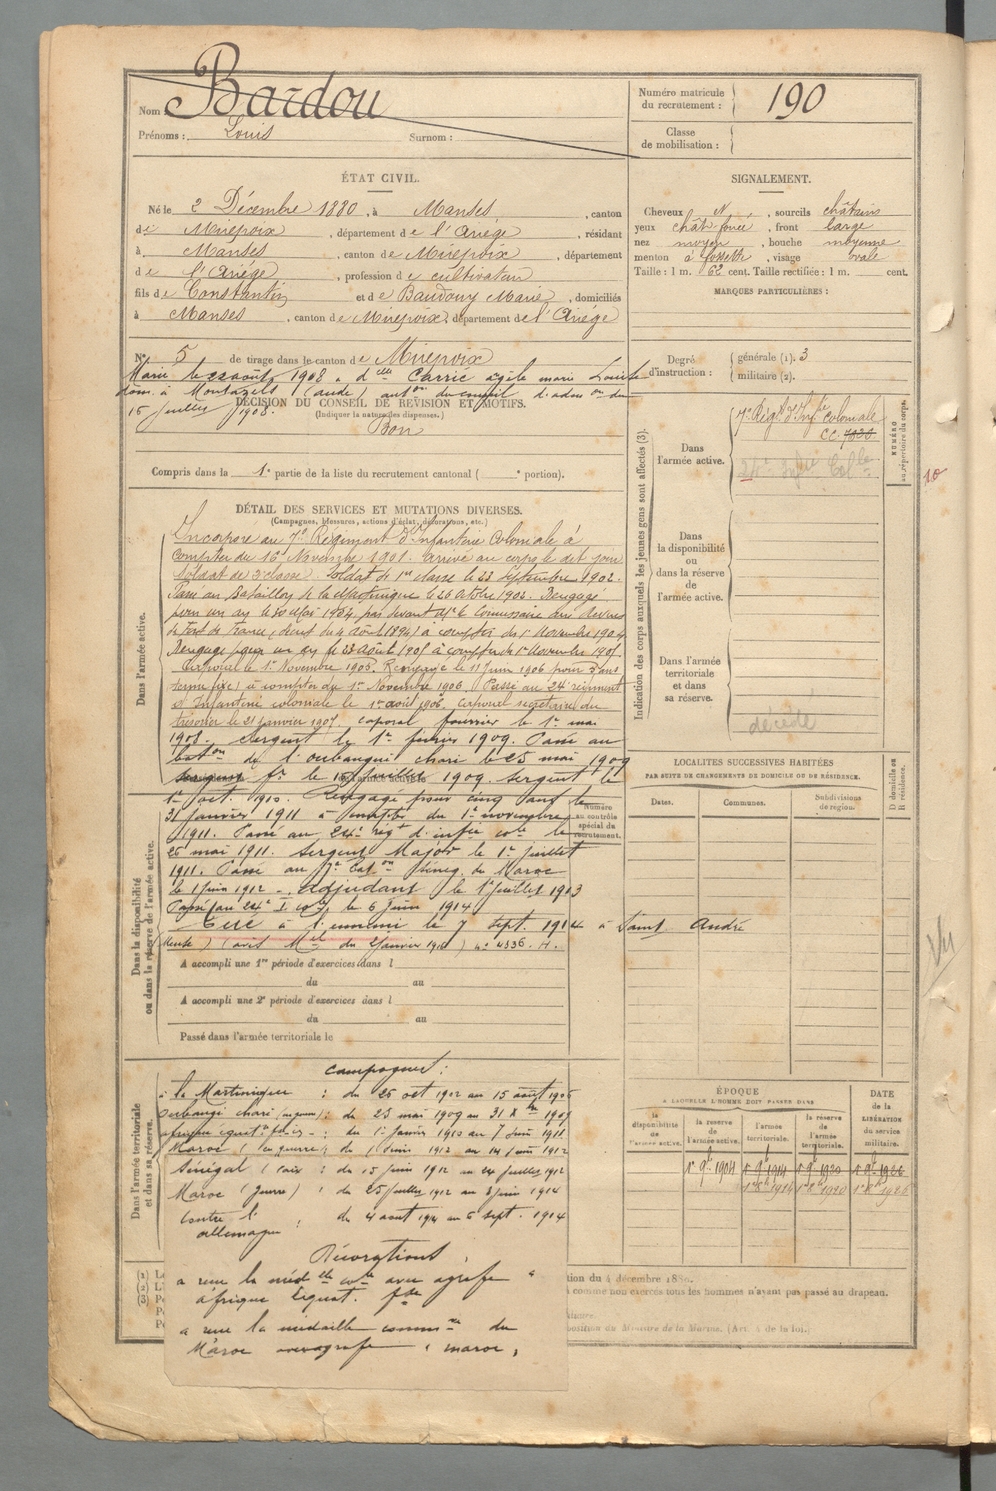 Nom : Bardou
Prénoms : Louis Surnom :
Numéro matricule
du recrutement : 190
Classe
de mobilisation :
ÉTAT CIVIL.
Né le 2 Décembre 1880, à Manses, canton
de Mirepoix, département de l'Ariége, résidant
à Manses, canton de Mirepoix, département
de l'Ariége, profession de cultivateur
fils de Constantin et de Baudouy Marie, domiciliés
à Manses, canton de Mirepoix, département de l'Ariége
SIGNALEMENT.
Cheveux N, sourcils châtains
yeux chât. foncé, front large
nez moyen, bouche moyenne
menton à fossette, visage ovale
Taille : 1 m. 62 cent. Taille rectifiée : 1 m. cent.
MARQUES PARTICULIÈRES :
N° 5 de tirage dans le canton de Mirepoix
Marié le 22 août 1908 à dlle Carrié marie Louise
dom. à Montazels (aude) auton du conseil d'adon du
15 juillet 1908.
DÉCISION DU CONSEIL DE RÉVISION ET MOTIFS.
(Indiquer la nature des dispenses.)
Bon
Compris dans la 1e partie de la liste du recrutement cantonal ( e portion).
Degré
d'instruction :
générale (1). 3
militaire (2).
DÉTAIL DES SERVICES ET MUTATIONS DIVERSES.
(Campagnes, blessures, actions d'éclat, décorations, etc.)
Dans l'armée active.
Incorporé au 7e Régiment d'Infanterie Coloniale à
compter du 16 Novembre 1901. arrivé au corps le dit jour
Soldat de 2e classe. Soldat de 1re classe le 23 Septembre 1902.
Passé au Bataillon de la Martinique le 26 octobre 1902. Rengagé
pour un an le 20 Mai 1904, par devant Mr le Commissaire aux
de Fort de France, (décret du 4 Août 1894) à compter du 1er Novembre 1904
Rengagé pour un an le 23 Août 1905 à compter du 1er Novembre 1905.
Caporal le 1er Novembre 1905. Rengagé le 11 Juin 1906 pour 3 ans
à compter du 1er Novembre 1906. Passé au 24e régiment
d'Infanterie coloniale le 1er août 1906. Caporal secrétaire du
trésorier le 21 janvier 1907. caporal fourrier le 1er mai
1908. Sergent le 1er février 1909. Passé au
baton de l'oubangui chari le 25 mai 1909
fr le 1909. Sergent le
1er oct. 1910. Rengagé pour cinq ans le
31 janvier 1911 à compter du 1er novembre
1911. Passé au 24e régt d'infie cole le
26 mai 1911. Sergent Major le 1er juillet
1911. Passé au baton Sénég. du Maroc
le 1 juin 1912 - adjudant le 1er juillet 1913
Passé au 24e I cole le 6 juin 1914
Tué à l'ennemi le 7 sept. 1914 à Saint André
(Meuse) (avis Mel du 2 janvier 1916) n° 4336. H.
Dans la disponibilité
ou dans la réserve de l'armée active.
Numéro
au contrôle
spécial de
recrutement.
A accompli une 1re période d'exercices dans l
du au
A accompli une 2e période d'exercices dans l
du au
Passé dans l'armée territoriale le
Dans l'armée territoriale
et dans sa réserve.
Campagnes :
à la Martinique : du 26 oct 1902 au 15 août 1906
Oubangi chari : du 25 mai 1909 au 31 Xbre 1909
afrique équatle : du 1er janvier 1910 au 7 Juin 1911
Maroc (en guerre) : du 1 Juin 1912 au 14 Juin 1912
Sénégal (paix) : du 15 juin 1912 au 24 juillet 1912
Maroc (guerre) : du 25 juillet 1912 au 3 juin 1914
Contre l' : du 4 aout 1914 au 6 sept. 1914
allemagne
Décorations.
a reçu la médlle cole avec agrafe "
afrique équat. fse
a reçu la médaille commve du
Maroc avec agrafe " maroc "
Indication des corps auxquels les jeunes gens sont affectés (3).
Dans
l'armée active.
7e Régt d'Infie coloniale
cc. 7020
24e Infie Colle
NUMÉRO
au répertoire du corps.
10
Dans
la disponibilité
ou dans la réserve
de
l'armée active.
Dans l'armée
territoriale
et dans
sa réserve.
décédé
LOCALITÉS SUCCESSIVES HABITÉES
PAR SUITE DE CHANGEMENTS DE DOMICILE OU DE RÉSIDENCE.
Dates. Communes. Subdivisions
de région.
D domicile ou
R résidence.
Vu
ÉPOQUE
A LAQUELLE L'HOMME DOIT PASSER DANS
la
disponibilité
de
l'armée active.
la réserve
de
l'armée active.
l'armée
territoriale.
la réserve
de
l'armée
territoriale.
DATE
de la
LIBÉRATION
du service
militaire.
1er 9bre 1904 1er 9bre 1914 1er 9bre 1920 1er 9bre 1926
(1) L
(2) L'
(3) P
tion du 4 décembre 1889.
comme non exercés tous les hommes n'ayant pas passé au drapeau.
position du Ministre de la Marine. (Art. 4 de la loi.)